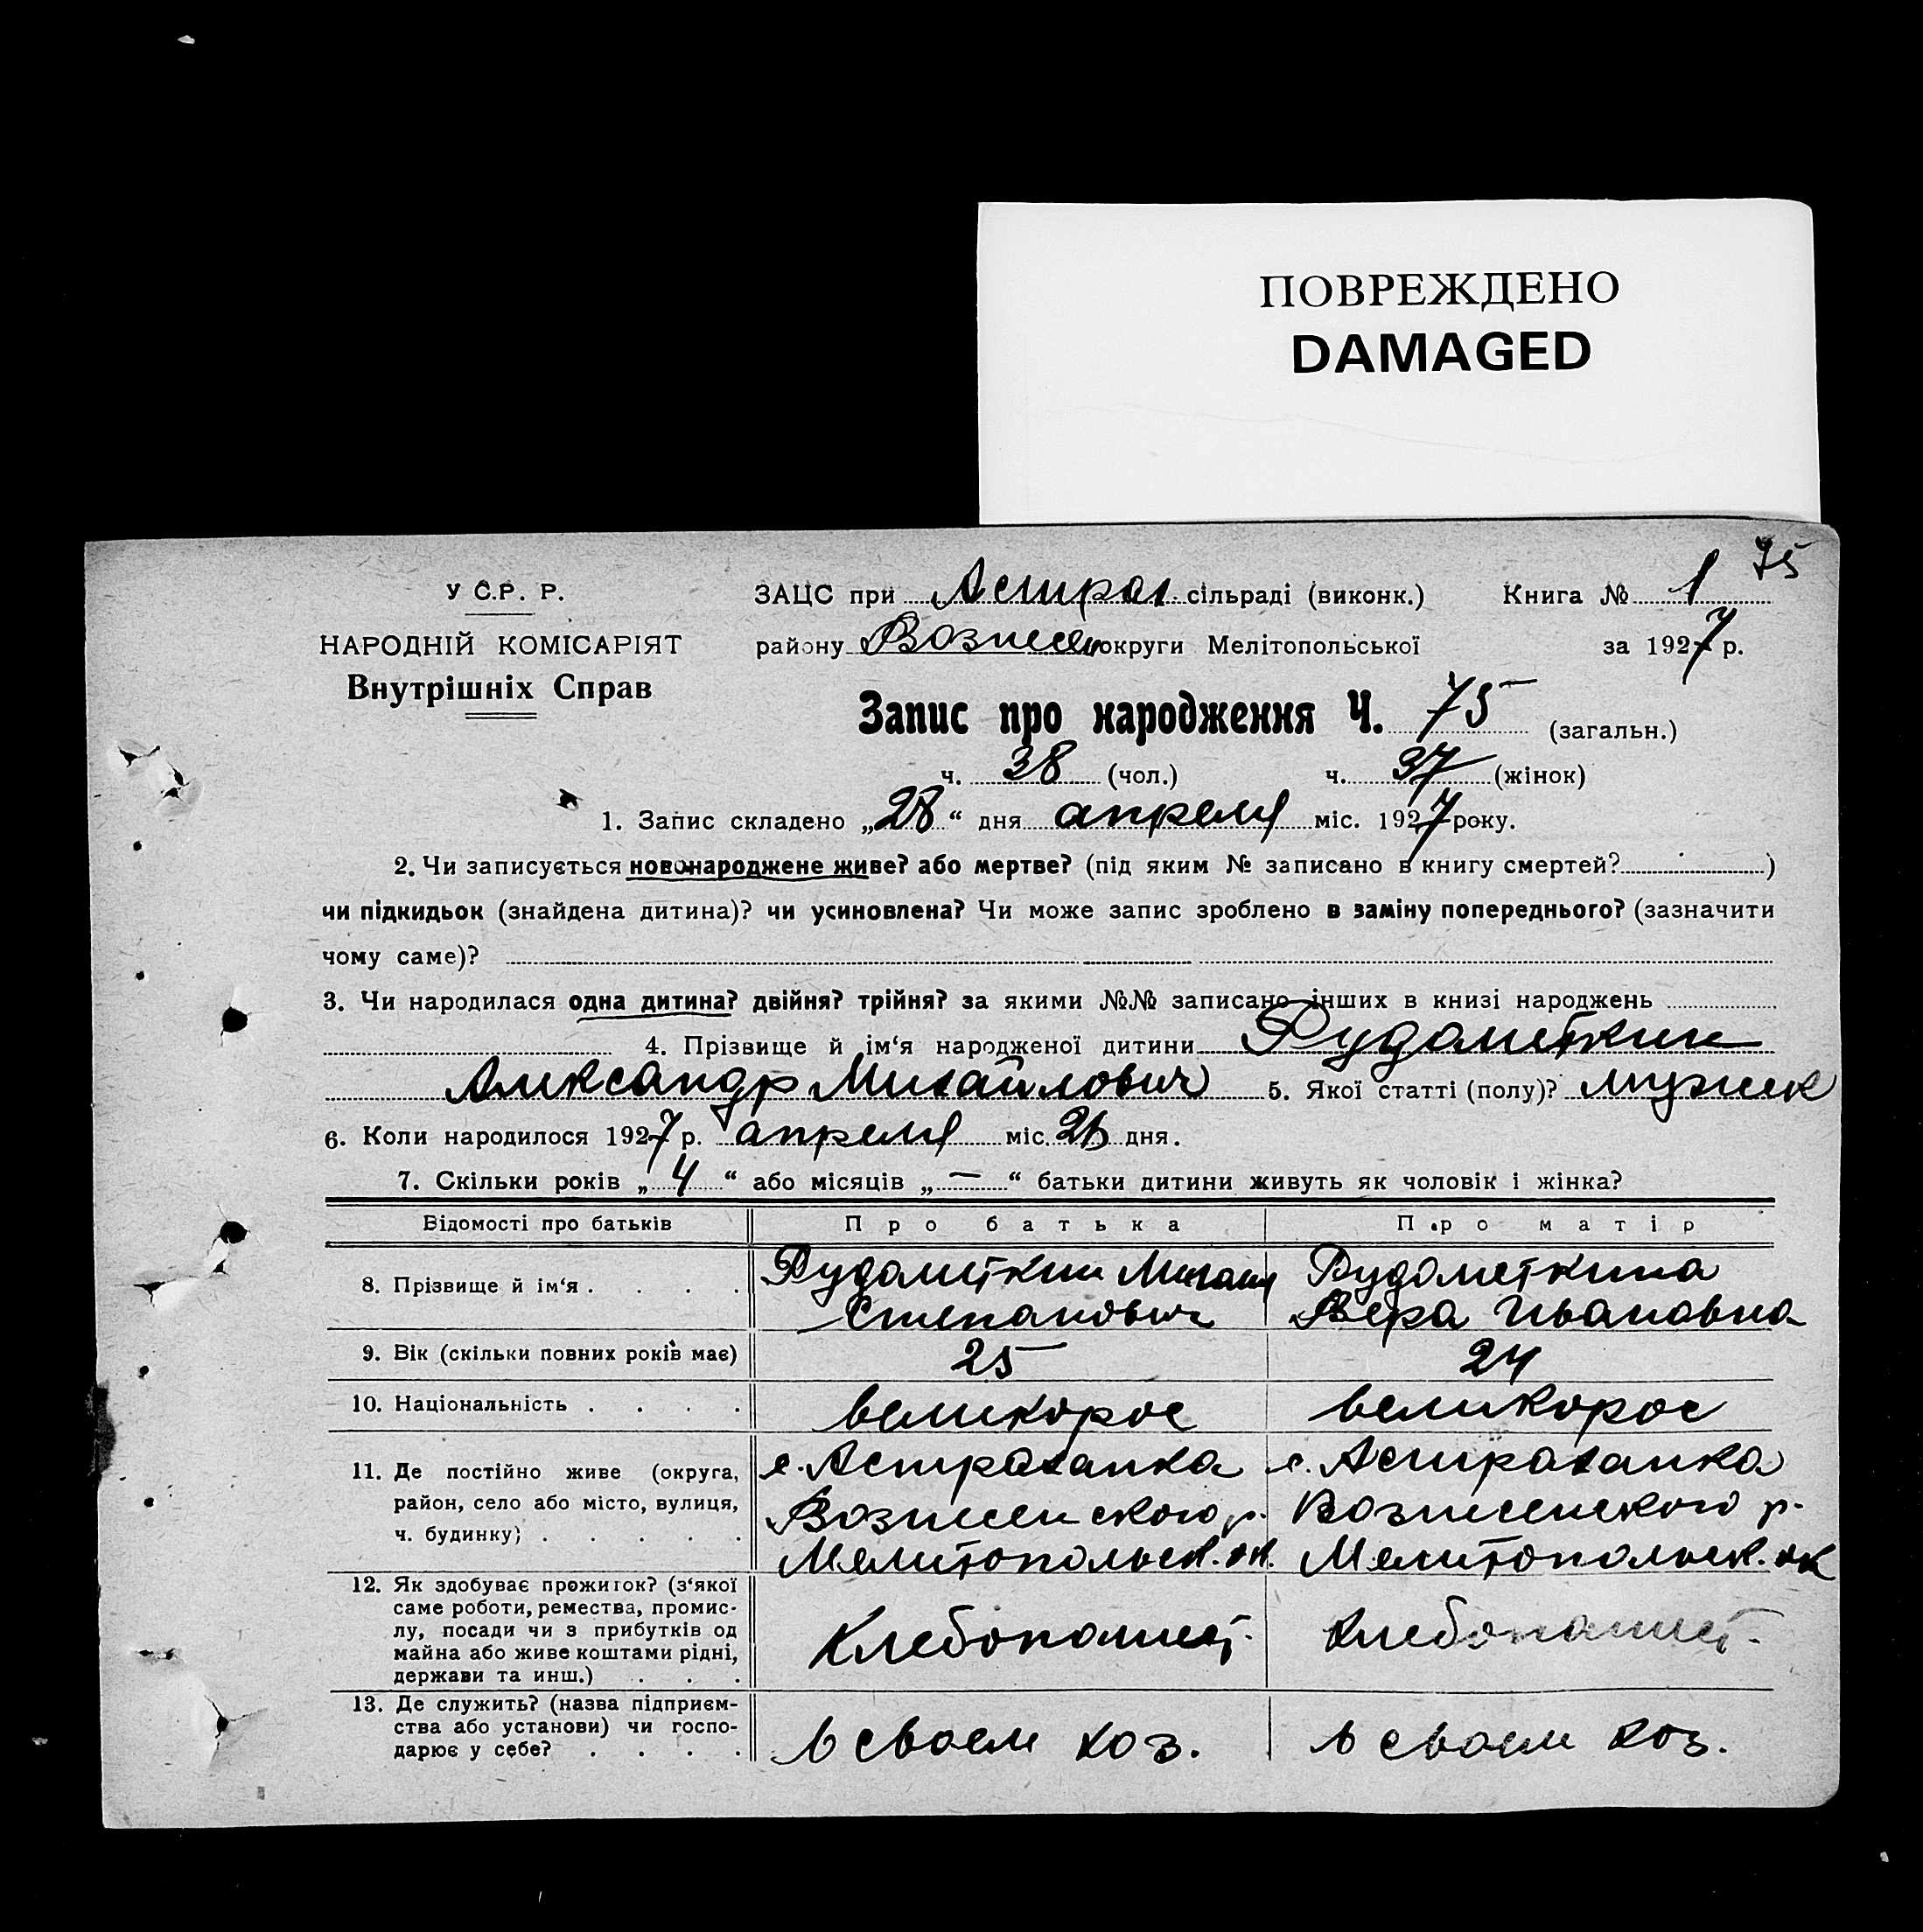 ПОВРЕЖДЕНО
DAMAGED
75
У С.Р. Р.
ЗАЦС при Астрах. сільраді (виконк.) Книга № 1
НАРОДНІЙ КОМІСАРІЯТ
району Вознесен округи Мелітопольської за 1927 р.
Внутрішніх Справ
Запис про народження Ч. 75 (загальн.)
ч. 38 (чол.) ч. 37 (жінок)
1. Запис складено „28“ дня апреля міс. 1927 року.
2. Чи записується новонароджене живе? або мертве? (під яким № записано в книгу смертей? )
чи підкидьок (знайдена дитина)? чи усиновлена? Чи може запис зроблено в заміну попереднього? (зазначити
чому саме)?
3. Чи народилася одна дитина? двійня? трійня? за якими №№ записано інших в книзі народжень
4. Прізвище й ім‘я народженої дитини Рудометкин
Александр Михайлович 5. Якої статті (полу)? мужск
6. Коли народилося 1927 р. апреля міс. дня.
7. Скільки років „4“ або місяців „—“ батьки дитини живуть як чоловік і жінка?
Відомості про батьків Про батька Про матір
8. Прізвище й ім‘я . . . . Рудометкин Михаил Рудометкина
Степанович Вера Ивановна
9. Вік (скільки повних років має) 25 24
10. Національність . . . . великорос великорос
11. Де постійно живе (округа, с. Астраханка с. Астраханка
район, село або місто, вулиця, Вознесенского р. Вознесенского р.
ч. будинку) . . . . . Мелитопольск. ок. Мелитопольск. ок
12. Як здобуває прожиток? (з‘якої
саме роботи, ремества, промис-
лу, посади чи з прибутків од Хлебопашест. Хлебопашест.
майна або живе коштами рідні,
держави та инш.) . . .
13. Де служить? (назва підприєм-
ства або установи) чи госпо- в своем хоз. в своем хоз.
дарює у себе? . . . .